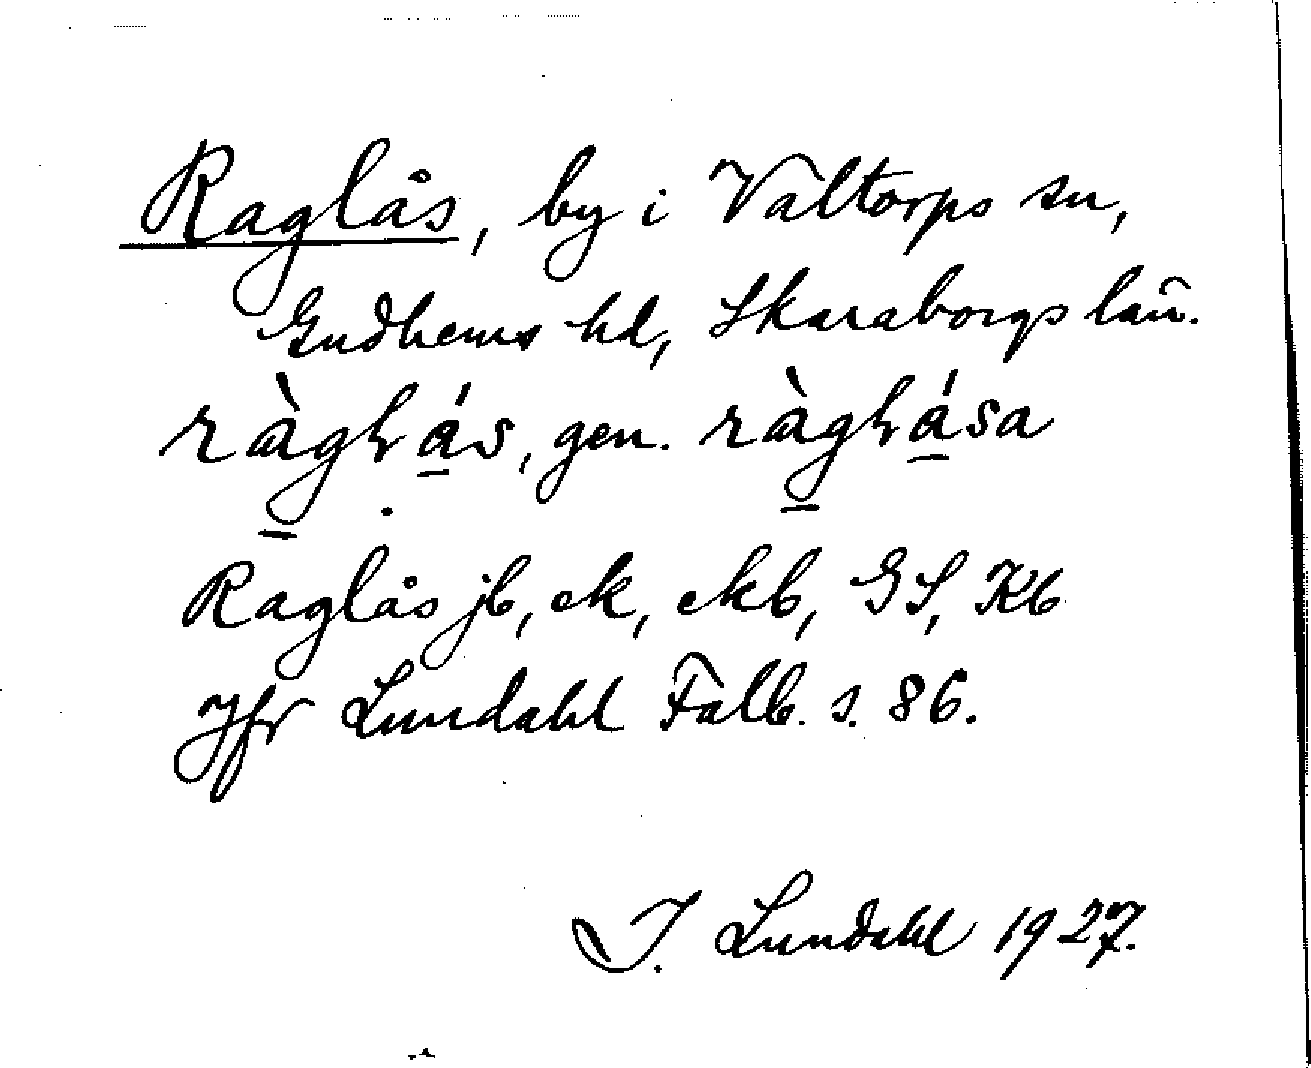 Raglås, by i Valtorps sn,
Gudhems hd, Skaraborgs län.
gen.
Raglås jb, ek, ekb, GS, Kb
Jfr Lundahl Falb. s. 86.
I. Lundahl 1927.